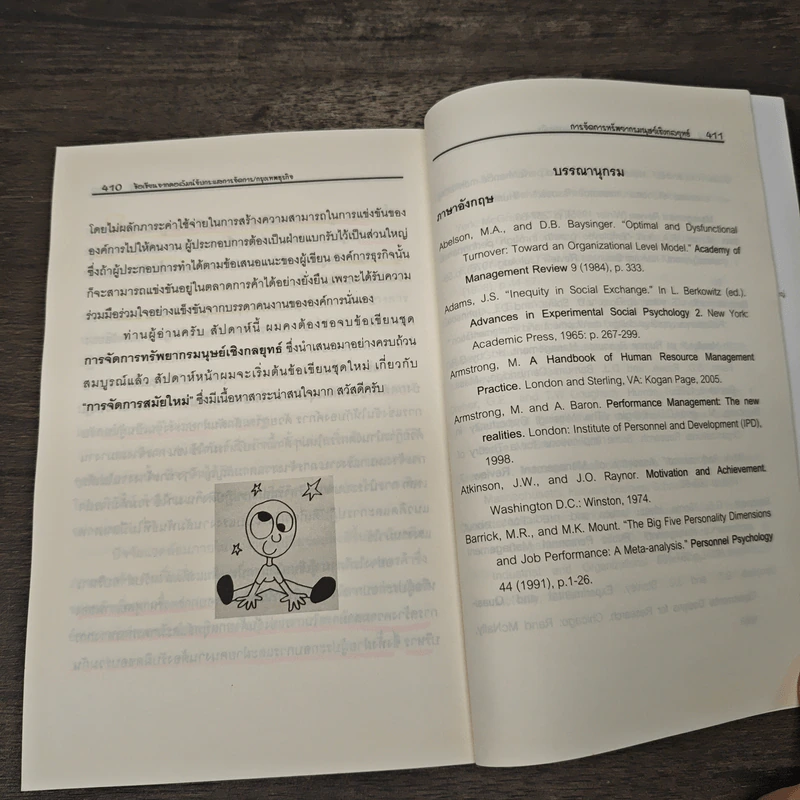 410 ข้อเขียนจากคอลัมน์จับกระแสการจัดการ/กรุงเทพธุรกิจ
โดยไม่ผลักภาระค่าใช้จ่ายในการสร้างความสามารถในการแข่งขันของ
องค์การไปให้คนงาน ผู้ประกอบการต้องเป็นฝ่ายแบกรับไว้เป็นส่วนใหญ่
ซึ่งถ้าผู้ประกอบการทำได้ตามข้อเสนอแนะของผู้เขียน องค์การธุรกิจนั้น
ก็จะสามารถแข่งขันอยู่ในตลาดการค้าได้อย่างยั่งยืน เพราะได้รับความ
ร่วมมือร่วมใจอย่างแข็งขันจากบรรดาคนงานขององค์การนั่นเอง
ท่านผู้อ่านครับ สัปดาห์นี้ ผมคงต้องขอจบข้อเขียนชุด
การจัดการทรัพยากรมนุษย์เชิงกลยุทธ์ ซึ่งนำเสนอมาอย่างครบถ้วน
สมบูรณ์แล้ว สัปดาห์หน้าผมจะเริ่มต้นข้อเขียนชุดใหม่ เกี่ยวกับ
"การจัดการสมัยใหม่" ซึ่งมีเนื้อหาสาระน่าสนใจมาก สวัสดีครับ
การจัดการทรัพยากรมนุษย์เชิงกลยุทธ์ 411
บรรณานุกรม
ภาษาอังกฤษ
Abelson, M.A., and D.B. Baysinger. "Optimal and Dysfunctional
Turnover: Toward an Organizational Level Model." Academy of
Management Review 9 (1984), p. 333.
Adams, J.S. "Inequity in Social Exchange." In L. Berkowitz (ed.).
Advances in Experimental Social Psychology 2. New York:
Academic Press, 1965: p. 267-299.
Armstrong, M. A Handbook of Human Resource Management
Practice. London and Sterling, VA: Kogan Page, 2005.
Armstrong, M. and A. Baron. Performance Management: The new
realities. London: Institute of Personnel and Development (IPD),
1998.
Atkinson, J.W., and J.O. Raynor. Motivation and Achievement.
Washington D.C.: Winston, 1974.
Barrick, M.R., and M.K. Mount. "The Big Five Personality Dimensions
and Job Performance: A Meta-analysis." Personnel Psychology
44 (1991), p.1-26.